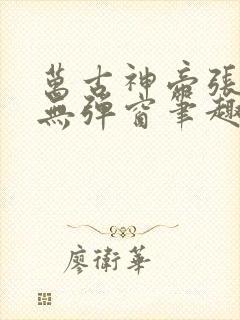 萬古神帝張
無彈窗筆趣
廖衛華